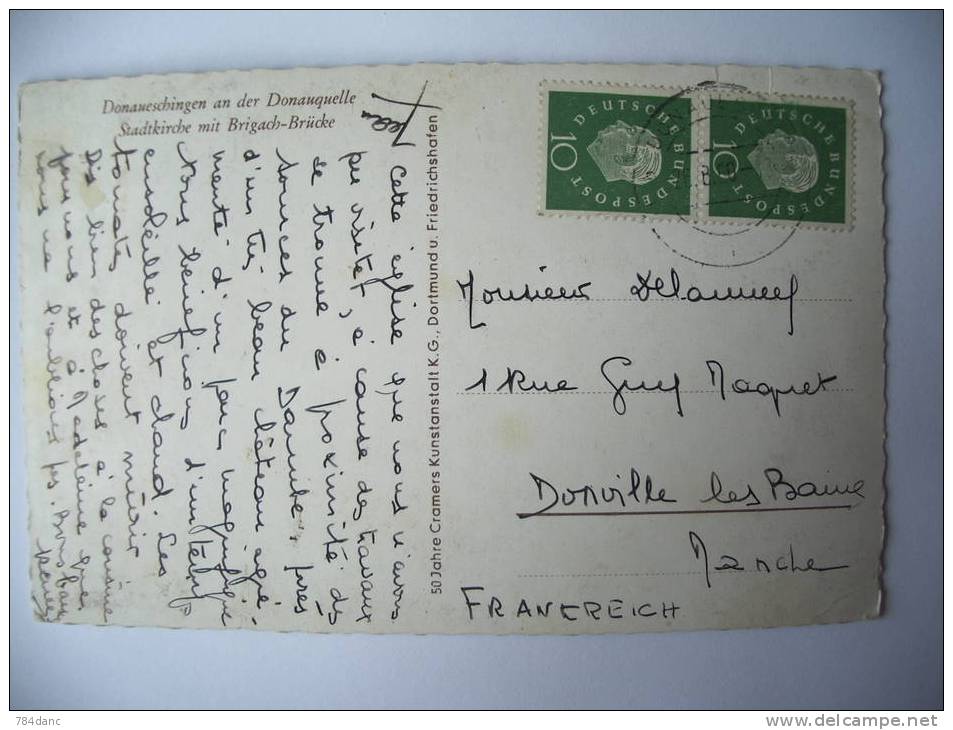 Donaueschingen an der Donauquelle
Stadtkirche mit Brigach-Brücke
Cette église que nous n'avons
pu visiter, à cause des travaux
se trouve à proximité des
sources du Danube, près
d'un très beau château agré-
menté d'un parc magnifique
Nous bénéficions d'un temps
ensoleillé et chaud. Les
tomates doivent mûrir
Dis bien des choses à la cousine
et à Madeleine que
nous ne l'oublions pas. Bons baisers
Jean
50 Jahre Cramers Kunstanstalt K.G., Dortmund u. Friedrichshafen
DEUTSCHE BUNDESPOST
10
DEUTSCHE BUNDESPOST
10
Monsieur
1 Rue Guy Maquet
Donville les Bains
Manche
FRANKREICH
784danc
www.delcampe.net